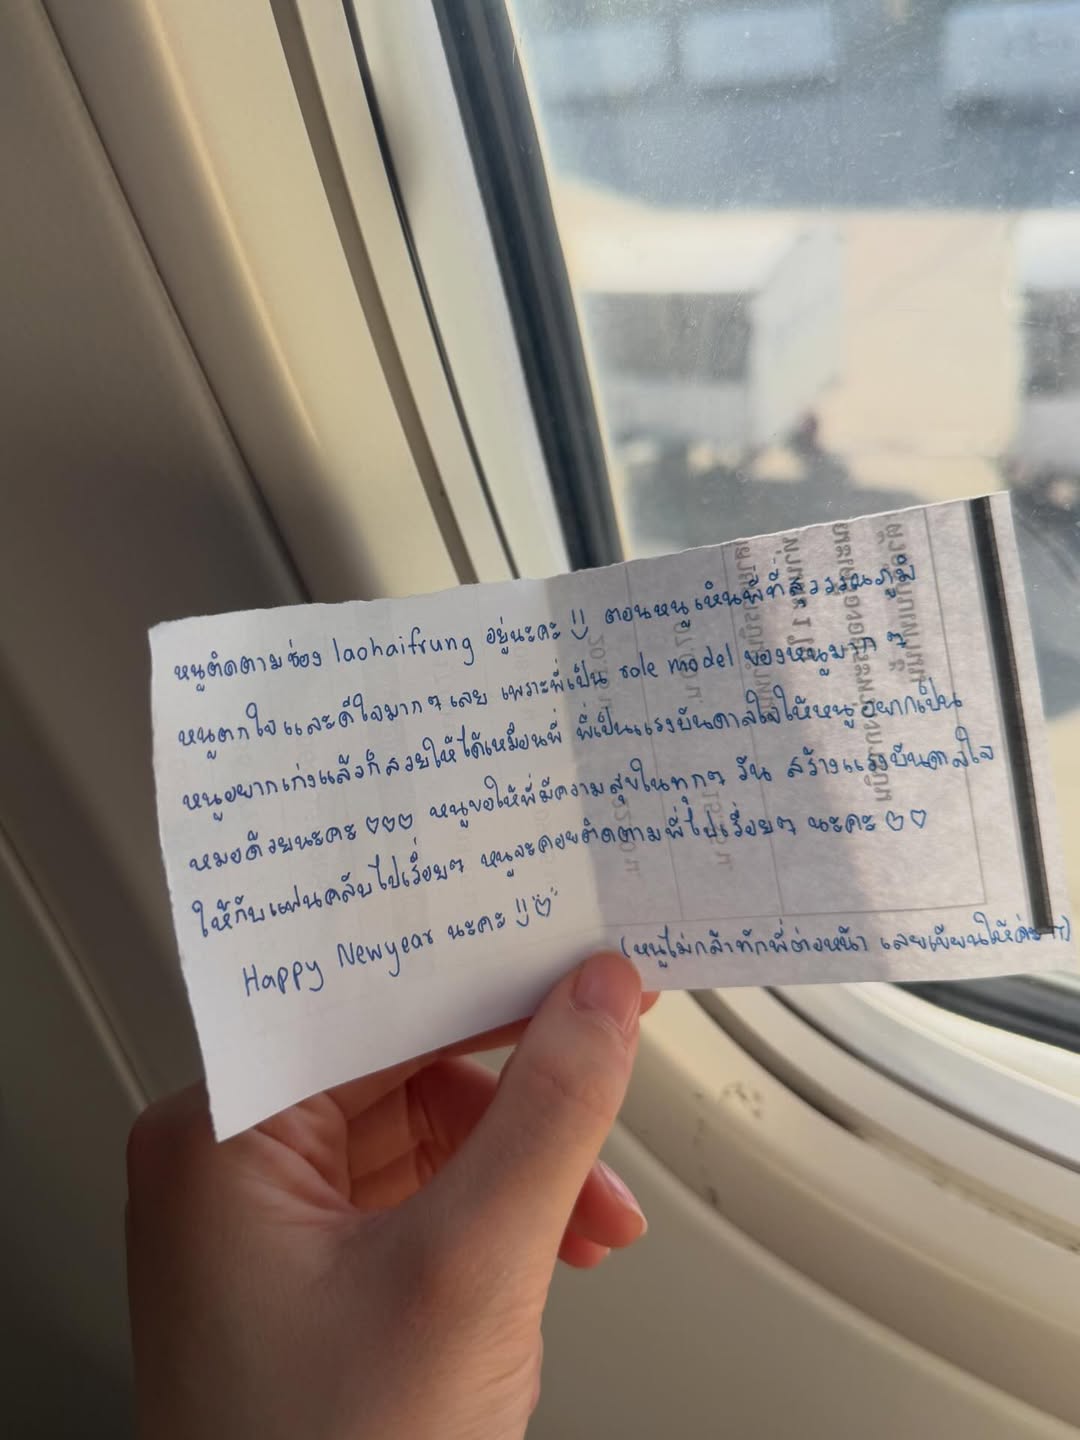 หนูติดตามช่อง laohaifrung อยู่นะคะ !! ตอนหนูเห็นพี่ที่สุวรรณภูมิ
หนูตกใจและดีใจมากๆ เลย เพราะพี่เป็น role model ของหนูมาก ๆ
หนูอยากเก่งแล้วก็สวยให้ได้เหมือนพี่ พี่เป็นแรงบันดาลใจให้หนูอยากเป็น
หมอด้วยนะคะ ♡♡♡ หนูขอให้พี่มีความสุขในทุกๆ วัน สร้างแรงบันดาลใจ
ให้กับแฟนคลับไปเรื่อยๆ หนูจะคอยติดตามพี่ไปเรื่อยๆ นะคะ ♡♡
Happy Newyear นะคะ !! ♡
(หนูไม่กล้าทักพี่ต่อหน้า เลยเขียนให้ค่ะ)